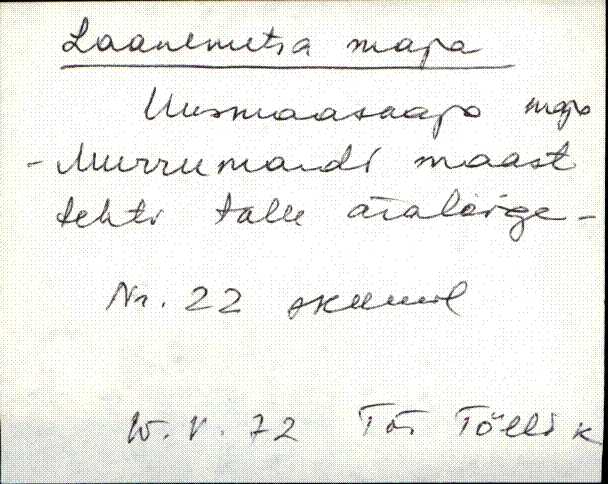 Laanemetsa maja
Uusmaasaaja maja
- Murrumardi maast
tehti talle äralõige -
Nr. 22 skeemil
10.V.72 Tõi Tõllik